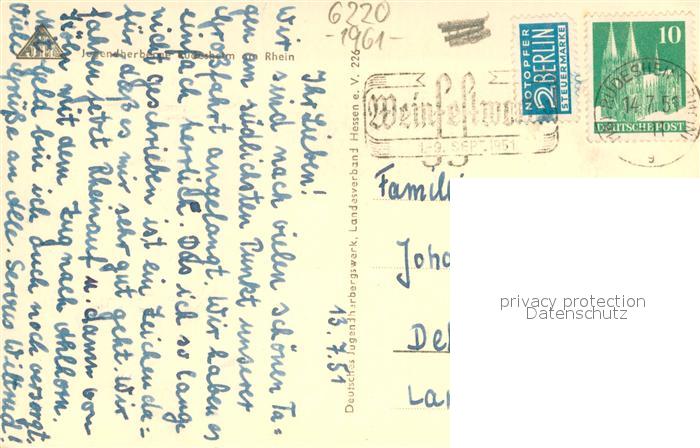 6220
-1961-
Jugendherberge Rüdesheim am Rhein
Ihr Lieben!
Wir sind nach vielen schönen Ta-
gen am südlichsten Punkt unserer
Großfahrt angelangt. Wir haben es
einfach herrlich. Das ich so lange
nicht geschrieben ist ein Zeichen da-
für, daß es mir sehr gut geht. Wir
fahren jetzt Rheinauf u. dann von
mit dem Zug nach Ahlhorn.
Geld bin ich auch noch versorgt.
Viele Grüße an alle. Servus Wiltrud!
13.7.51
Deutsches Jugendherbergswerk, Landesverband Hessen e. V. 226
Weinfestwo
1.-9. SEPT. 1951
NOTOPFER
2 BERLIN
STEUERMARKE
10
DEUTSCHE POST
RÜDESHEIM
14.7.51
g
Famili
Joha
De
Lan
privacy protection
Datenschutz